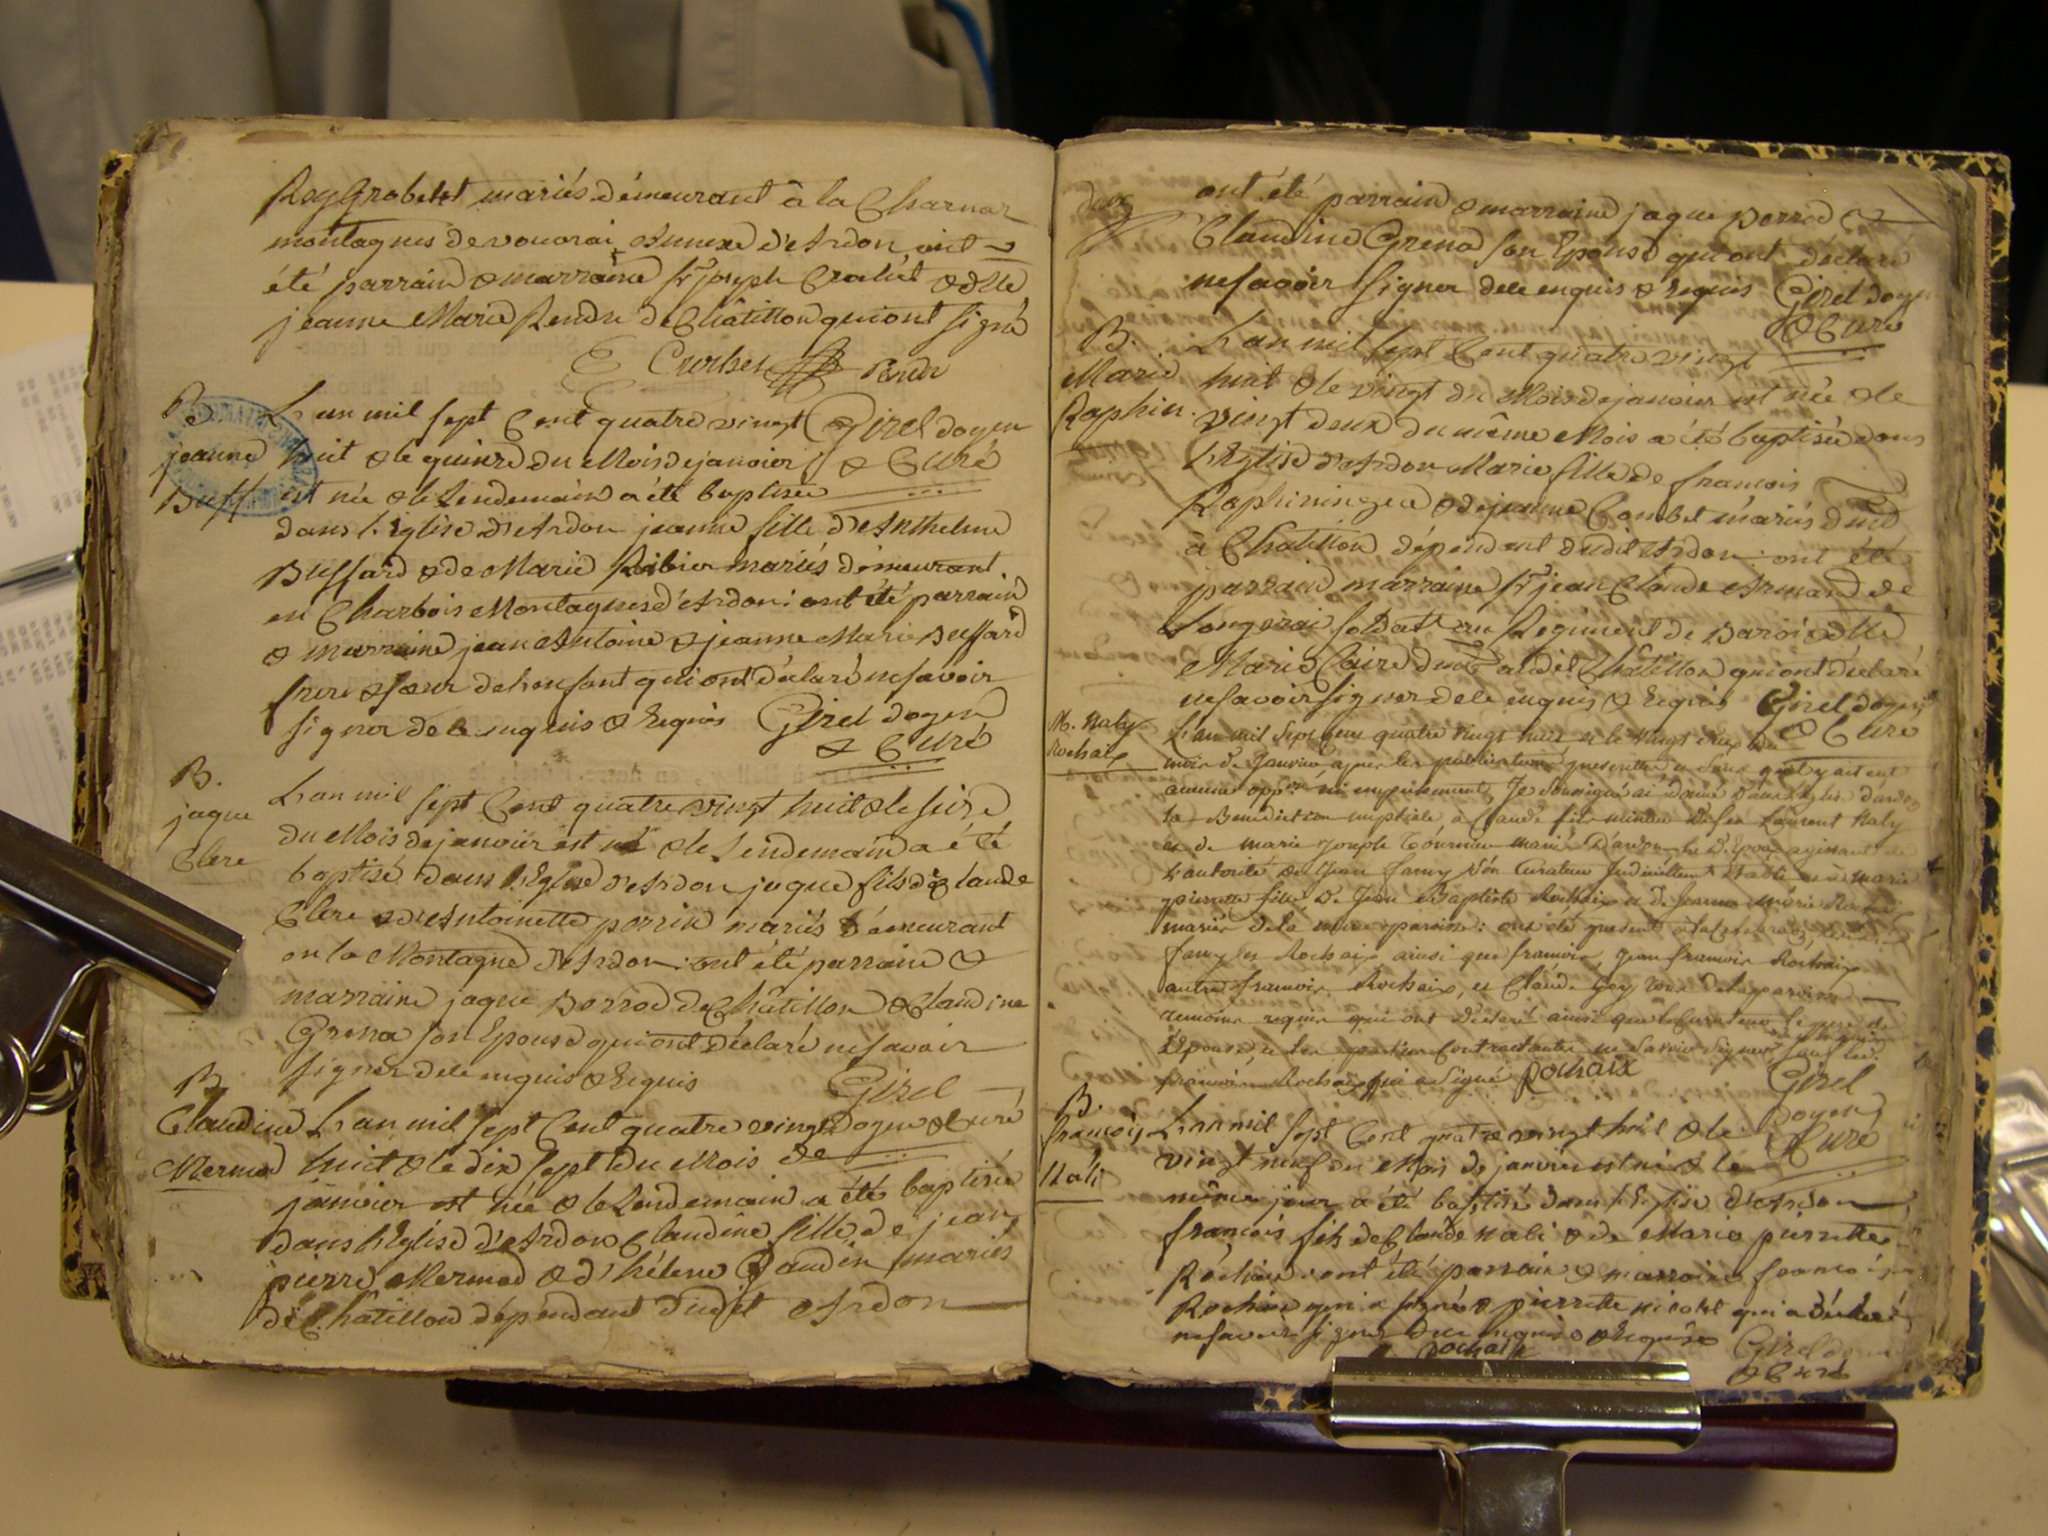 Roy Grobelet mariés démeurant à la Charnar
montagnes de vouarai Annexe d'Ardon ont
été parrain & marraine Sr joseph Crolut & dlle
jeanne Marie Rendu de Châtillon qui ont signé
Rendu
B.
jeanne
Buff.
L'an mil sept Cent quatre vingt Girel doyen
huit & le quinze du Mois de janvier & Curé
est née & le Lendemain a été baptisée
dans l'Eglise d'Ardon jeanne fille d'Anthelme
Buffard & de Marie Ribier mariés démeurant
en Charbois Montagnes d'Ardon : ont été parrain
& marraine jean Antoine & jeanne Marie Buffard
frere & soeur de l'enfant qui ont déclaré ne savoir
signer de ce enquis & Requis Girel doyen
& Curé
B.
jaque
Clerc
L'an mil sept Cent quatre vingt huit & le seize
du Mois de janvier est né & le Lendemain a été
baptisé dans l'Eglise d'Ardon jaque fils de Claude
Clerc & d'Antoinette perrin mariés démeurant
en la Montagne d'Ardon : ont été parrain &
marraine jaque perrod de Châtillon & Claudine
Grena son Epouse qui ont déclaré ne savoir
signer de ce enquis & Requis Girel
B.
Claudine
Mermod
L'an mil sept Cent quatre vingt doyen & Curé
huit & le dix sept du Mois de
janvier est née & le Lendemain a été baptisée
dans l'Eglise d'Ardon Claudine fille de jean
pierre Mermod & d'hélene Gaudin mariés
de Châtillon dépendant dudit Ardon
ont été parrain & marraine jaque perrod &
Claudine Grena son Epouse qui ont déclaré
ne savoir signer de ce enquis & Requis Girel doyen
& Curé
B.
Marie
Raphin.
L'an mil sept Cent quatre vingt
huit & le vingt du Mois de janvier est née & le
vingt deux du même Mois a été baptisée dans
l'Eglise d'Ardon Marie fille de francois
& de jeanne Combet mariés
à Châtillon dépendant dudit Ardon : ont été
parrain marraine Sr jean Claude Armand de
Longerai soldat au Regiment de & dlle
Marie Claire audit Châtillon qui ont déclaré
ne savoir signer de ce enquis & Requis Girel doyen
& Curé
M. Naly
Rochaix
L'an mil sept cent quatre vingt huit et le vingt cinq du
mois de Janvier, apres les publications prescrittes et sans qu'il y ait eut
aucune oppon ni empechement, Je soussigné ai donné dans l'eglise d'ardon
la Benediction nuptiale, a Claude fils mineur de feu Laurent Naly
et de Marie Joseph Tournier mariés D'ardon agissant de
l'autorité de Jean famy son Curateur Judiciellement Etabli et a Marie
pierrette fille de Jean Baptiste Rochaix et de Jeanne Marie
mariés de la même paroisse : ont été present
famy et Rochaix ainsi que francois, Jean francois Rochaix
autre francois Rochaix, et Claude de la paroisse
temoins requis qui ont déclaré ainsi que le Curateur, le pere de
l'épouse, et les parties Contractantes ne savoir signer sauf led.
francois Rochaix qui a signé Rochaix Girel
doyen
& Curé
B.
francois
Nali
L'an mil sept Cent quatre vingt huit & le
vingt neuf du Mois de janvier est né & le
même jour a été baptisé dans l'Eglise d'Ardon
francois fils de Claude Nali & de Marie pierrette
Rochaix : ont été parrain & marraine francois
Rochaix qui a signé & pierrette nicolet qui a déclaré
ne savoir signer de ce enquise & Requise
Rochaix Girel doyen
& Curé